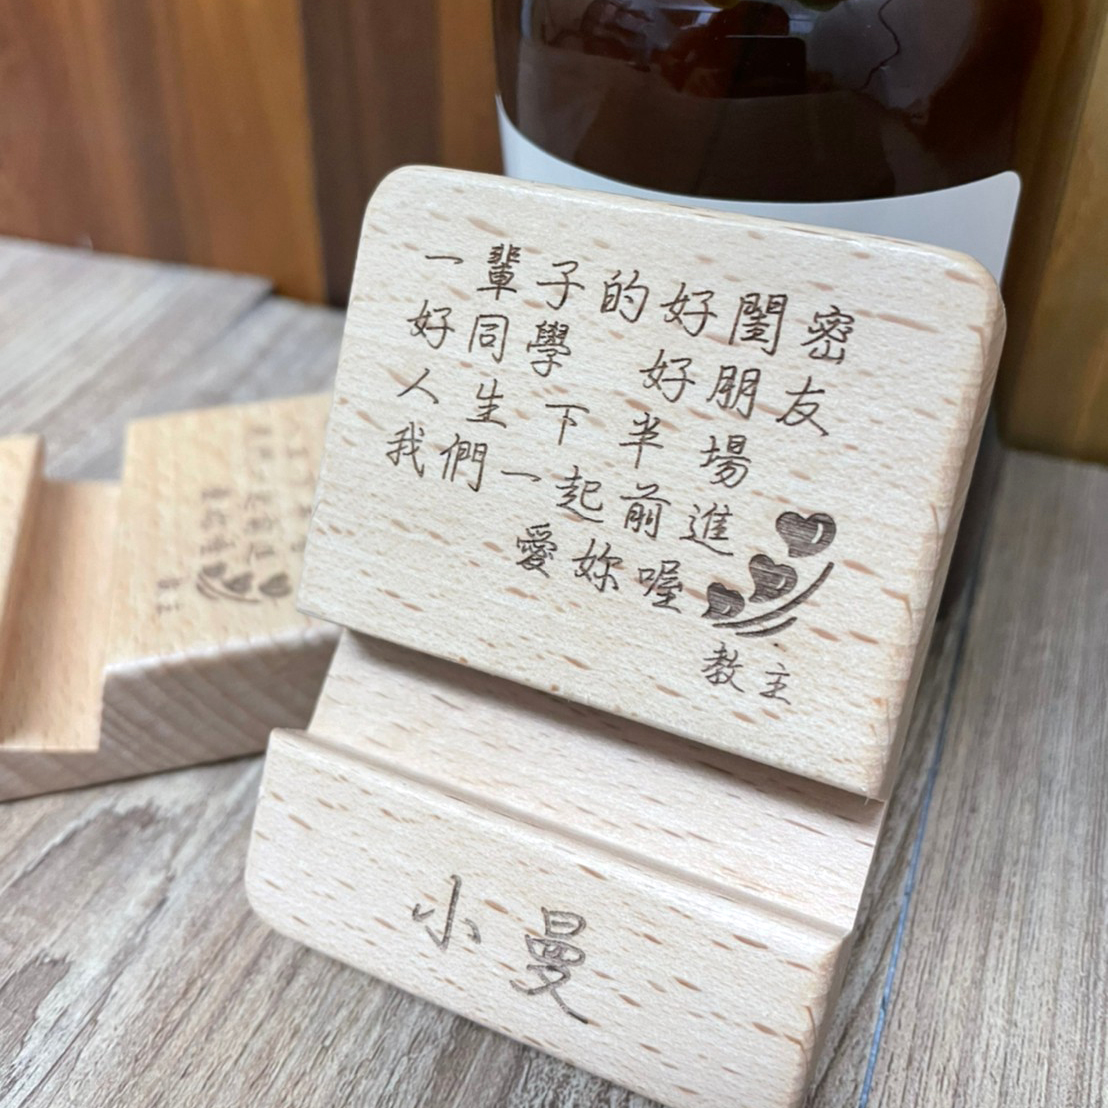 一輩子的好閨密
好同學 好朋友
人生下半場
我們一起前進
愛妳喔
教主
小曼